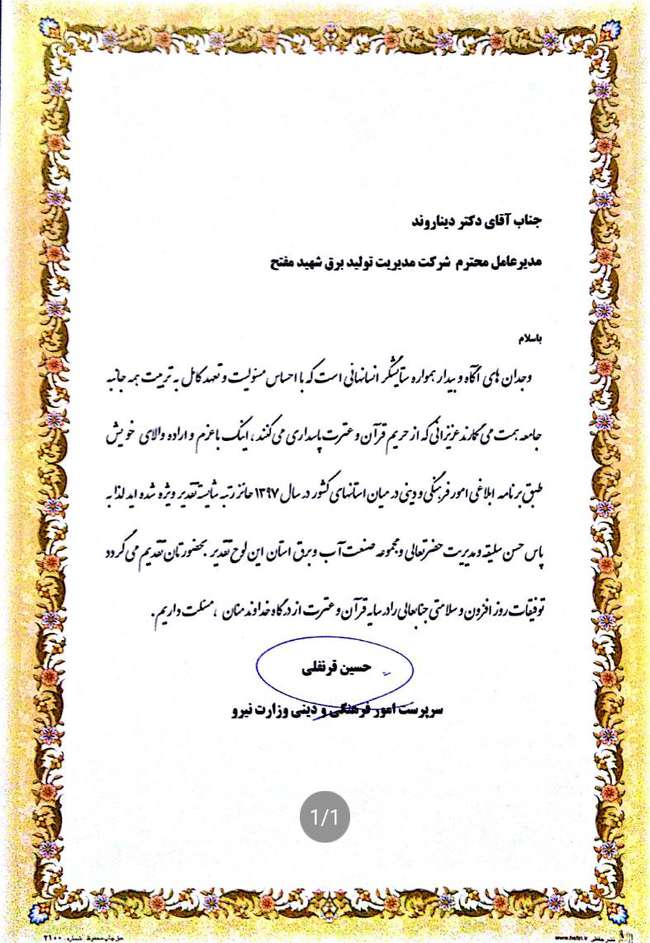 جناب آقای دکتر دیناروند
مدیرعامل محترم شرکت مدیریت تولید برق شهید مفتح
باسلام
وجدان های آگاه و بیدار همواره ستایشگر انسانهائی است که با احساس مسئولیت و تعهد کامل به تربیت همه جانبه
جامعه همت می گمارند عزیزانی که از حریم قرآن و عترت پاسداری می کنند ، اینک باعزم و اراده والای خویش
طبق برنامه ابلاغی امور فرهنگی و دینی در میان استانهای کشور در سال ۱۳۹۷ حائز رتبه شایسته تقدیر ویژه شده اید لذا به
پاس حسن سلیقه و مدیریت حضرتعالی و مجموعه صنعت آب و برق استان این لوح تقدیر بحضورتان تقدیم می گردد
توفیقات روز افزون و سلامتی جنابعالی را در سایه قرآن و عترت از درگاه خداوند منان ، مسئلت داریم .
حسین قرنفلی
سرپرست امور فرهنگی و دینی وزارت نیرو
1/1
حق چاپ محفوظ شماره ۲۱۰۰